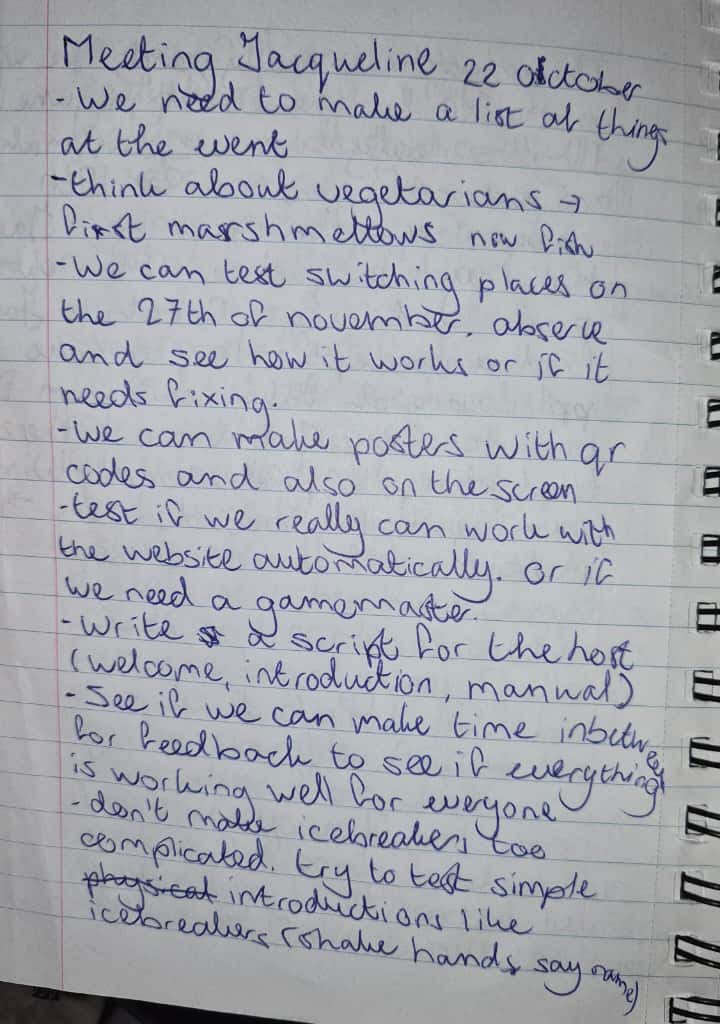 Meeting Jacqueline 22 October
- We need to make a list of things
at the event
- think about vegetarians →
first marshmellows now fish
- We can test switching places on
the 27th of november. observe
and see how it works or if it
needs fixing.
- We can make posters with qr
codes and also on the screen
- test if we really can work with
the website automatically. or if
we need a gamemaster.
- Write a script for the host
(welcome, introduction, manual)
- See if we can make time inbetween
for feedback to see if everything
is working well for everyone
- don't make icebreakers too
complicated. try to test simple
physical introductions like
icebreakers (shake hands, say name)